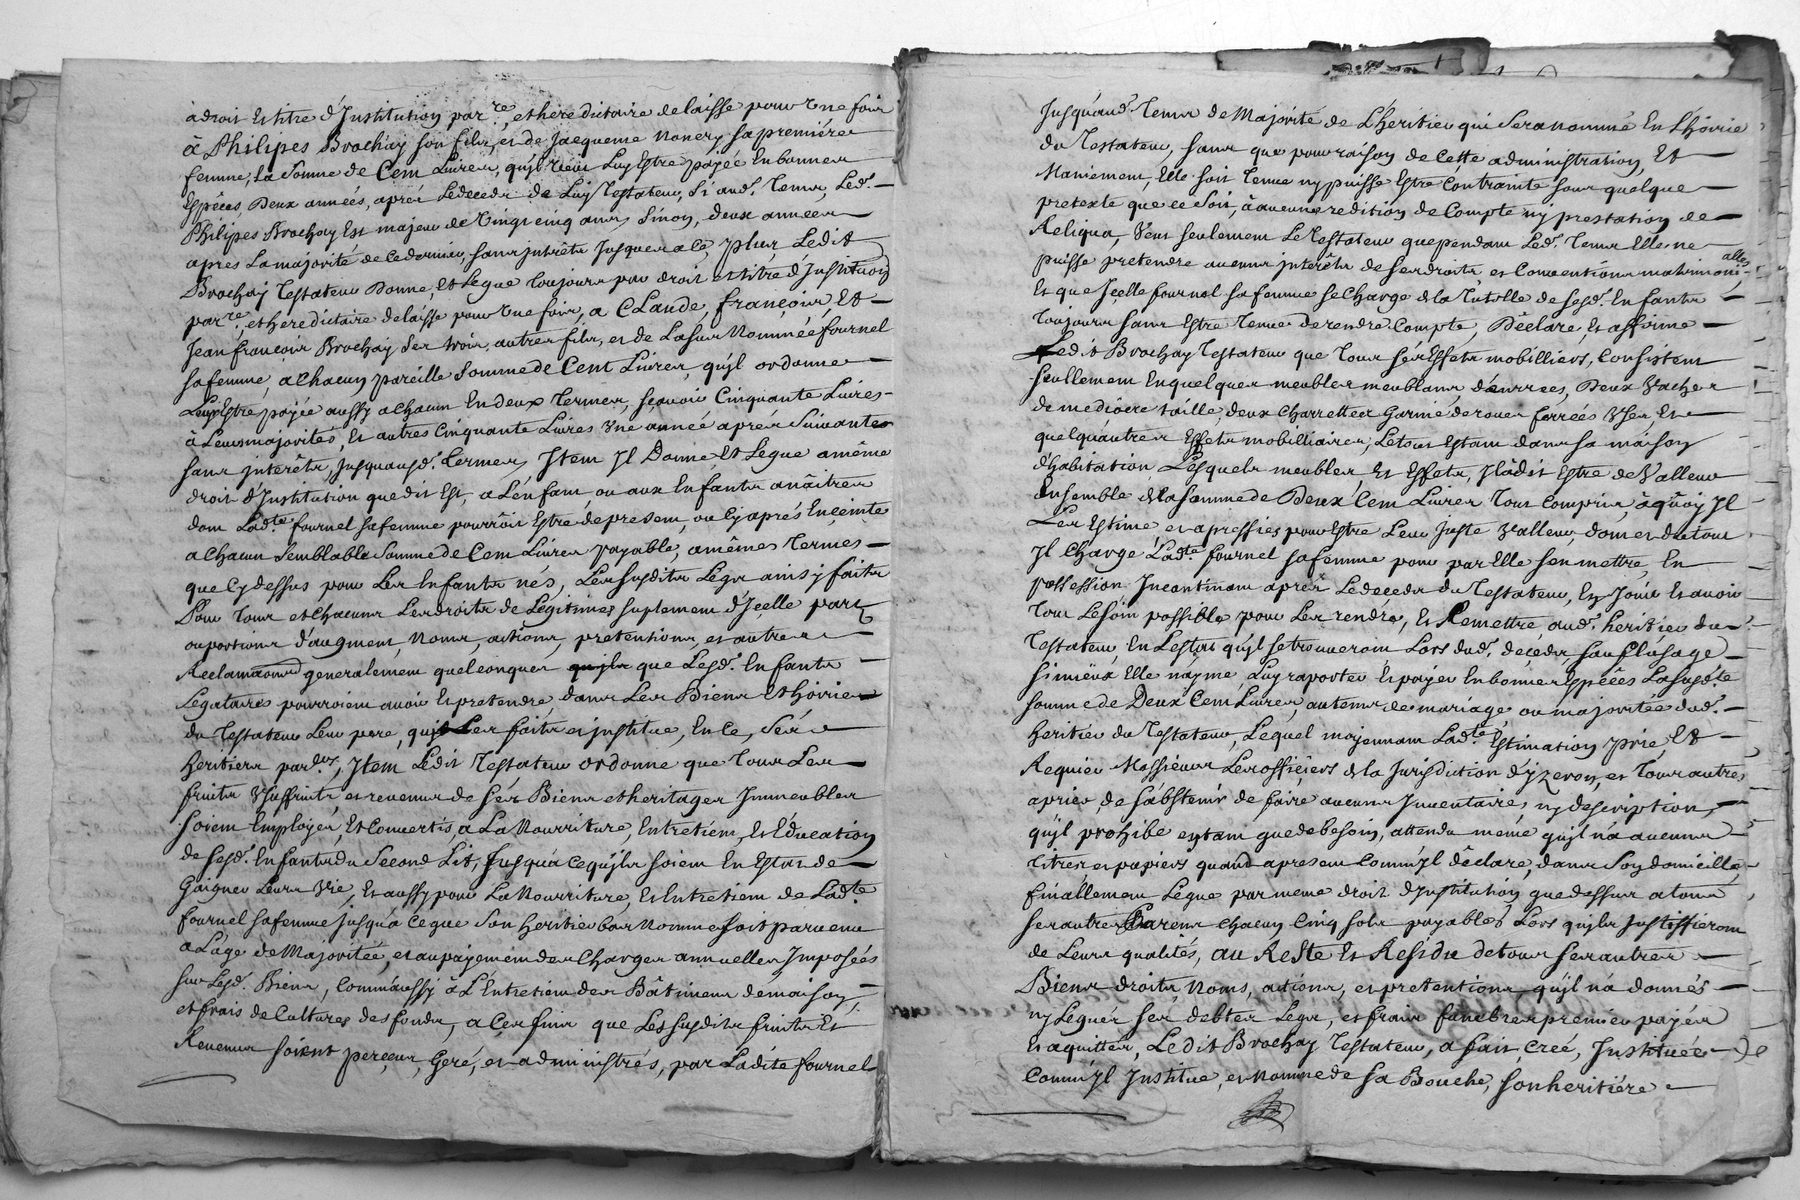 à droit et titre d'Institution par.re, et hereditaire delaisse pour Une fois
à Philipes Brochay son fils, et de Jacqueme Nonery sa premiére
femme, la somme de Cem Livres, qu'il veut Luy Estre payée En bonnes
Espêces, Deux années, aprés Le deceds de Luy Testateur, Si aud.t Tems, Led.t
Philipes Brochay Est majeur de Vingt cinq ans, Sinon, deux années
apres La majorité de Ce dernier, sans interêts Jusques a Ce, plus, Ledit
Brochay Testateur Donne, et Legue Toujours par droit et titre d'Institution
par.re, et hereditaire delaisse pour Une fois, a CLaude, françois, Et
Jean françois Brochay Ses trois autres fils, et de Lasus Nommée fournel
sa femme, a Chacun pareille Somme de Cent Livres, qu'il ordonne
Leurs Estre payée aussy a Chacun En deux Termes, sçavoir Cinquante Livres
à Leurs majorités, Et autres Cinquante Livres Une année aprés Suivante
sans interêts, Jusquausd.t Termes, Item Il Donne et Légue a même
droit d'Institution que dit Est, a L'enfant ou aux Enfants a nâitre
dont Lad.te fournel sa femme pourroit Estre de present, ou Cy aprés Enceinte
a Chacun Semblable Somme de Cem Livres payable, a mêmes Termes
que Cy dessus pour Les Enfants nés, Les susdits Légs ainsy faits
Pour Tous et Chacuns Les droits de Légitimes suplement d'Jcelle part
ou portions d'augment, Noms, actions, pretentions, et autres
Reclamaons generalement quelconques que Lesd.t Enfants
Legataires pourroient avoir Et pretendre, dans Les Biens Et hoirie
du Testateur Leur pere, qui Les fait et institue, En Ce, Sés
heritiers par.ers, Item Ledit Testateur ordonne que Tous Les
fruits Usuffruits et revenus de Sés Biens et heritages Immeubles
soient Employés, Et Convertis, a La Nourriture, Entretien, Et Education
de sesd.t Enfants du Second Lit, Jusqu'a ce qu'ils soient En Estat de
Gaigner Leurs Vie, Et aussy pour La Nourriture, Et Entretient de Lad.te
fournel sa femme jusqu'a Ce que Son heritier bas Nommé soit parvenu
a L'age de Majoritée, et au payement des Charges annuelles Imposées
sur Lesd.t Biens, Comm'aussy a L'Entretien des Bâtimens de maison,
et frais de Cultures des fonds, a Ces fins que Les susdits fruits Et
Revenus soient perçeus, Geré, et administrés, par Ladite fournel
Jusqu'aud.t Tems de Majorité de L'heritier qui Sera nommé En L'hoirie
du Testateur, sans que pour raison de Cette administration, Et
Maniement, Elle soit Tenue ny puisse Estre Contrainte sous quelque
pretexte que ce soit, à aucune redition de Compte ny prestation de
Reliqua, Veut seulement Le Testateur que pendant Led.t Tems Elle ne
puisse pretendre aucuns interêts de Ses droits et Conventions matrimonialles
Et que Jcelle fournel sa femme se Charge de la Tutelle de sesd.t Enfants
Toujours sans Estre Tenue de rendre Compte, Déclare, Et affirme
Ledit Brochay Testateur que Tous sés Effets mobilliers, Consistent
seullement En quelques meubles meublans, dénrrées, Deux Vaches
de mediocre taille deux Charrettes Garnie de roues ferreés Usés, Et
quelqu'autres Effets mobilliaires, Le tout Estant dans sa maison
d'habitation Lesquels meubles, Et Effets, Il a dit Estre de Valleur
Ensemble de la somme de Deux Cem Livres Tout Compris, à quoy Il
Les Estime et apressies pour Estre Leur Juste Valleur, dont et du tout
Il Charge Lad.te fournel sa femme pour par Elle sen mettre, En
possession Incontinant aprés Le deceds du Testateur, En Joüir Et avoir
Tout Le soin possible pour Les rendre, Et Remettre aud.t heritier du
Testateur, En L'estat qu'il se trouveront Lors dud.t decéds, sauf L'usage
si mieux Elle n'ayme, Luy raporter Et payer En bonnes Espêces Lasusd.te
somme de Deux Cem Livres, au tems de mariage ou majoritée dud.t
heritier du Testateur, Lequel moyennant Lad.te Estimation prie, Et
Requier Messieurs Les officiers de la Jurisdiction d'yzeron, et Tous autres
a prier, de s'abstenir de faire aucuns Inventaire, ny description,
qu'il prohibe en tant que de besoin, attendu mémé qu'il n'a aucuns
titres, et papiers quand a present Comm'Il déclare, dans Son domicille,
finallement Legue par meme droit d'Institution que dessus a tous
ses autres Parens chacun Cinq sols payables Lors qu'ils Justiffieront
de Leurs qualités, au Reste Et Residu de tous ses autres
Biens droits Noms, actions, et pretentions qu'il n'a donnés
ny Légués sés debtes Legs, et frais funébres premier payés
Et aquittés, Ledit Brochay Testateur, a fait, Creé, Instituée
Comm'Il Institue, et Nomme de sa Bouche, son heritiére